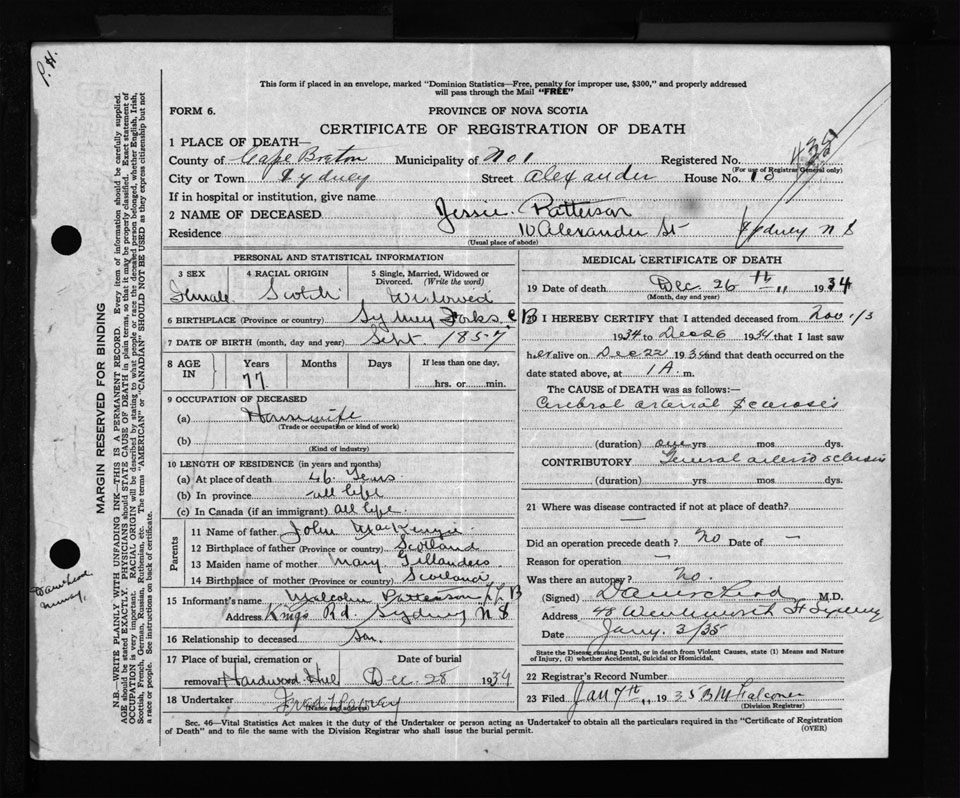 P. H.
This form if placed in an envelope, marked "Dominion Statistics—Free, penalty for improper use, $300," and properly addressed
will pass through the Mail "FREE"
FORM 6.
PROVINCE OF NOVA SCOTIA
CERTIFICATE OF REGISTRATION OF DEATH
435
1 PLACE OF DEATH—
County of Cape Breton Municipality of No 1 Registered No.
(For use of Registrar General only)
City or Town Sydney Street Alexander House No. 10
If in hospital or institution, give name
2 NAME OF DECEASED Jessie Patterson
Residence 10 Alexander St Sydney N S
(Usual place of abode)
PERSONAL AND STATISTICAL INFORMATION
3 SEX 4 RACIAL ORIGIN 5 Single, Married, Widowed or Divorced. (Write the word)
Female Scotch Widowed
6 BIRTHPLACE (Province or country) Sydney Forks C B
7 DATE OF BIRTH (month, day and year) Sept. 1857
8 AGE IN Years Months Days If less than one day,
77 hrs. or min.
9 OCCUPATION OF DECEASED
(a) Housewife
(Trade or occupation or kind of work)
(b)
(Kind of industry)
10 LENGTH OF RESIDENCE (in years and months)
(a) At place of death 46 Years
(b) In province all life
(c) In Canada (if an immigrant) all life.
Parents
11 Name of father John MacKenzie
12 Birthplace of father (Province or country) Scotland
13 Maiden name of mother Mary
14 Birthplace of mother (Province or country) Scotland
15 Informant's name Malcolm Patterson
Address Kings Rd. Sydney N S
16 Relationship to deceased Son.
17 Place of burial, cremation or Date of burial
removal Hardwood Hill Dec. 28 1934
18 Undertaker
(Name and address)
MEDICAL CERTIFICATE OF DEATH
19 Date of death Dec. 26th 1934
(Month, day and year)
20 I HEREBY CERTIFY that I attended deceased from Nov 1/3
1934 to Dec 26 1934 that I last saw
her alive on Dec 22 1934 and that death occurred on the
date stated above, at 1 A. m.
The CAUSE OF DEATH was as follows:—
Cerebral arterial sclerosis
(duration) one yrs mos dys.
CONTRIBUTORY General arterio sclerosis
(duration) yrs mos dys.
21 Where was disease contracted if not at place of death? —
Did an operation precede death? No Date of —
Reason for operation —
Was there an autopsy? No.
(Signed) M.D.
Address 48 Wentworth St Sydney
Date Jany. 3/35
State the Disease causing Death, or in death from Violent Causes, state (1) Means and Nature
of Injury, (2) whether Accidental, Suicidal or Homicidal.
22 Registrar's Record Number
23 Filed Jan 7th 1935 Falconer
(Division Registrar)
Sec. 46—Vital Statistics Act makes it the duty of the Undertaker or person acting as Undertaker to obtain all the particulars required in the "Certificate of Registration
of Death" and to file the same with the Division Registrar who shall issue the burial permit.
(OVER)
MARGIN RESERVED FOR BINDING
N.B.—WRITE PLAINLY WITH UNFADING INK—THIS IS A PERMANENT RECORD. Every item of information should be carefully supplied.
AGE should be stated EXACTLY. PHYSICIANS should STATE CAUSE OF DEATH in plain terms, so that it may be properly classified. Exact statement of
OCCUPATION is very important. RACIAL ORIGIN will be described by stating to what people or race the deceased person belonged, whether English, Irish,
Scottish, French, German, Russian, Ruthenian, etc. The terms "AMERICAN" or "CANADIAN" SHOULD NOT BE USED as they express citizenship but not
a race or people. See instructions on back of certificate.